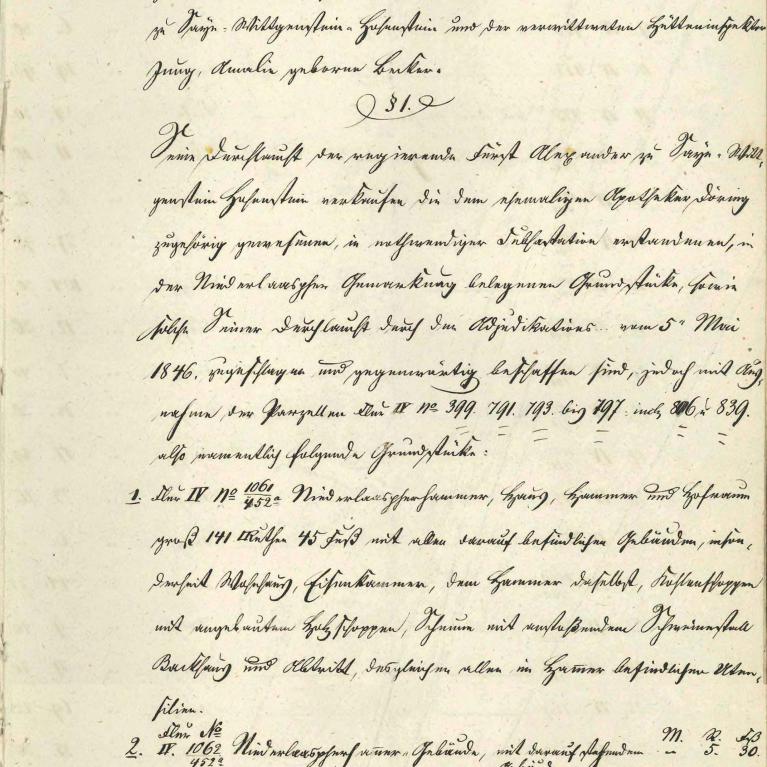 zu Sayn-Wittgenstein-Hohenstein und der verwittweten Hütteninspektor
Jung, Amalie geborne Becker.
§ 1.
Seine Durchlaucht der regierende Fürst Alexander zu Sayn-Witt,
genstein Hohenstein verkaufen die dem ehemaligen Apotheker Döring
zugehörig gewesenen, in nothwendiger Subhastation erstandenen, in
der Niederlaasphen Gemarkung belegenen Grundstücke, sowie
solche Seiner Durchlaucht durch den Adjudikations.. vom 5n Mai
1846. zugeschlagen und gegenwärtig beschaffen sind, jedoch mit Aus,
nahme der Parzellen Flur IV No 399. 791. 793. bis 797. incl. 806 u 839.
also namentlich folgende Grundstücke:
1. Flur IV No 1061/452a Niederlaaspherhammer, Haus, Hammer und Hofraum
groß 141 Ruthen 45 Fuß mit allen darauf befindlichen Gebäuden, inson,
derheit Wohnhaus, Eisenkammer, dem Hammer daselbst, Kohlenschoppen
mit angebautem Holzschoppen, Scheune mit anstoßendem Schweinestall
Backhaus und Abtritt, desgleichen allen im Hammer befindlichen Uten,
silien.
Flur No M. R. Fß
2. IV. 1062/452a Niederlaaspherhammer-Gebäude, mit darauf stehendem – 5. 30.